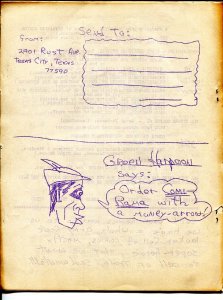 Send To:
From:
2901 Rust Ave.
Texas City, Texas
77590
Green Harpoon
Says:
Order Comi-
Rama with
a money-arrow